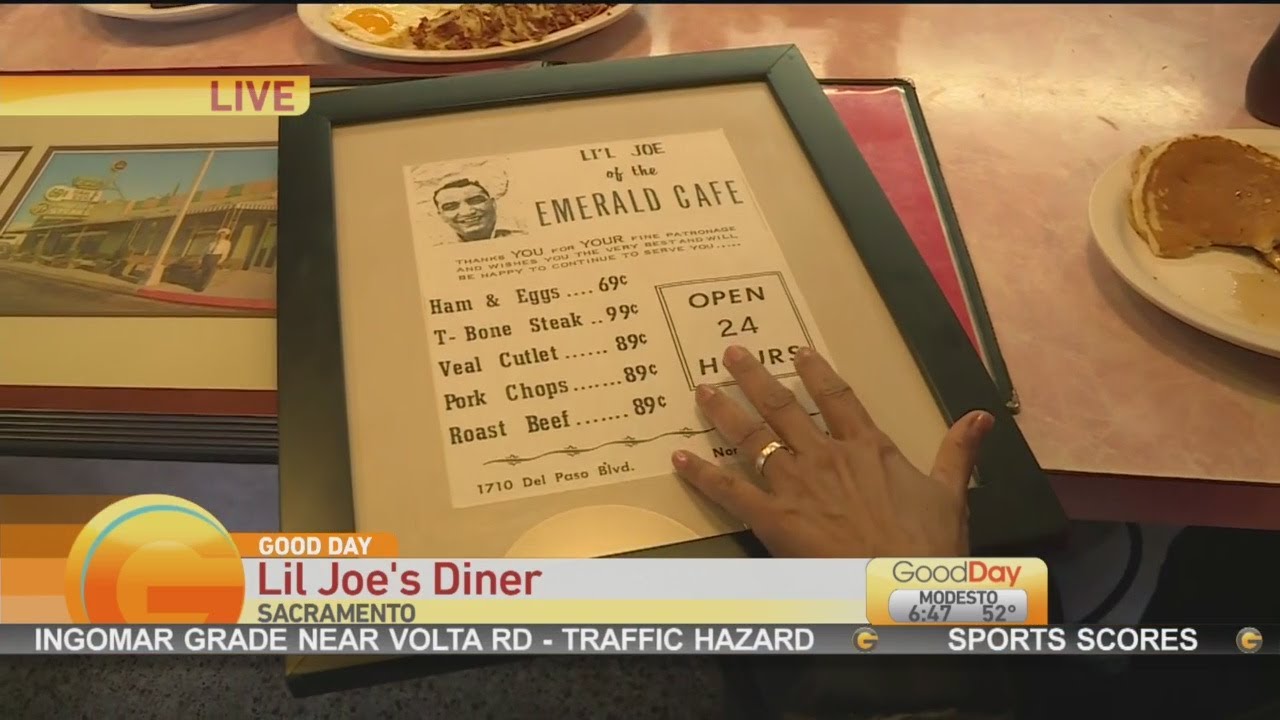 LIVE
LI'L JOE
of the
EMERALD CAFE
THANKS YOU FOR YOUR FINE PATRONAGE
AND WISHES YOU THE VERY BEST AND WILL
BE HAPPY TO CONTINUE TO SERVE YOU.....
Ham & Eggs .... 69¢
T-Bone Steak .. 99¢
Veal Cutlet ...... 89¢
Pork Chops ....... 89¢
Roast Beef ....... 89¢
OPEN
24
HOURS
1710 Del Paso Blvd.
GOOD DAY
Lil Joe's Diner
SACRAMENTO
GoodDay
MODESTO
6:47 52°
INGOMAR GRADE NEAR VOLTA RD - TRAFFIC HAZARD SPORTS SCORES